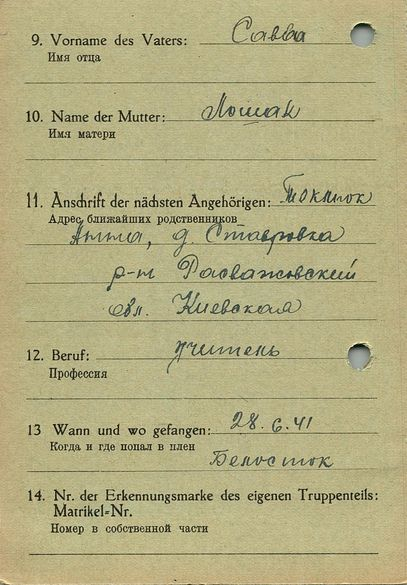 9. Vorname des Vaters: Савва
Имя отца
10. Name der Mutter: Лошак
Имя матери
11. Anschrift der nächsten Angehörigen:
Адрес ближайших родственников
Анна, д. Ставровка
р-н Розважовский
обл. Киевская
12. Beruf: учитель
Профессия
13 Wann und wo gefangen: 28.6.41
Когда и где попал в плен
Белосток
14. Nr. der Erkennungsmarke des eigenen Truppenteils:
Matrikel-Nr.
Номер в собственной части